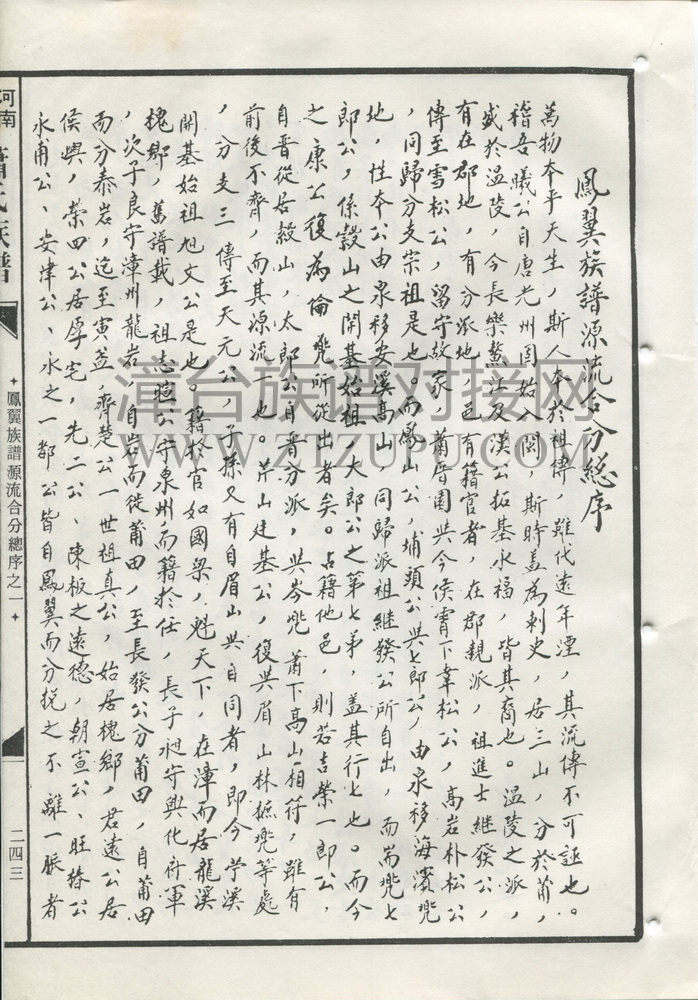 鳳翼族譜源流合分總序
萬物本乎天生，斯人本於祖傳，雖代遠年湮，其流傳不可誣也。
稽吾曦公自唐光州固始入閩，斯時蓋為刺史，居三山，分於莆，
盛於溫陵，今長樂鰲江及漢公拓基永福，皆其裔也。溫陵之派，
有在郡地，有分派地，邑有籍官者，在郡親派，祖進士繼發公，
傳至雪松公，留守故家，蕭厝園共今侯霄下韋松公，高岩朴松公
，同歸分支宗祖是也。而山公，埔頭公共七郎公，由泉移海濱兜
地，性本公由泉移安溪高山，同歸派祖繼發公所自出，而崙兜七
郎公，係穀山之開基始祖，大郎公之第七弟，蓋其行七也。而今
之康公復為侖兜所從出者矣。占籍他邑，則若吉榮一郎公，
自晉從居殼山，太郎公自晉分派，共岑兜蕭下高山相符，雖有
前後不齊，而其源流一也。芹山廷基公，復共眉山林摭兜等處
，分支三傳至天元公，子孫又有自眉山共自同者，即今苧溪
開基始祖旭文公是也。籍於官如國梁，魁天下，在漳而居龍溪
槐鄉，舊譜載，祖志暄公守泉州，而籍於任，長子昶守興化府軍
，次子良守漳州龍岩，自岩而徙莆田，至長發公分莆田，自莆田
而分泰岩，迄至寅孟，齊楚公一世祖真公，始居槐鄉，君遠公居
侯興，榮四公居厚宅，先二公、陳板之遠德，朝宣公、旺椿公
永甫公、安津公、永之一都公皆自鳳翼而分挩之不離一脈者
河南
蕭氏族譜
鳳翼族譜源流合分總序之一
二四三
漳台族谱对接网
WWW.ZTZUPU.COM